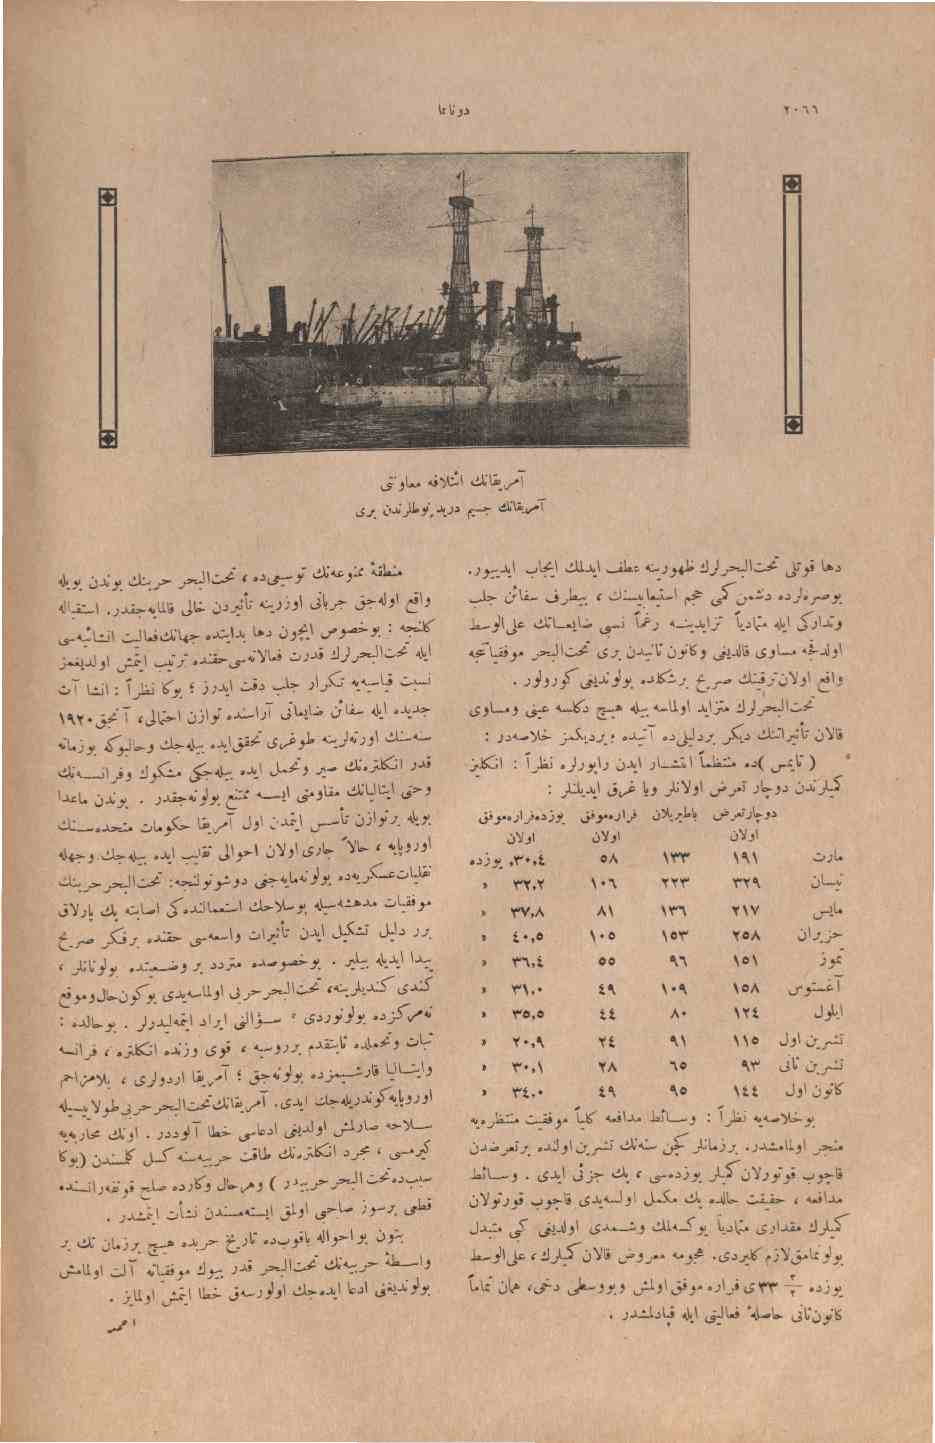 ٢٠٦٦
دوناعا
آمریقانك ائتلافه معاونتی
آمریقانك جسیم دریدنوطلرندن بری
دها قوتلی تحت‌البحرلرك ظهورینه عطف ایدلمك ایجاب ایدییور.
بوصره‌لرده دشمن کمی حجم استیعابیسنك ، بیطرف سفائن جلب
وتدارکی ایله متمادیاً تزایدینه رغماً نسبی ضایعاتك علی‌الوسط
اولدقجه مساوی قالدیغی وکانون ثانیدن بری تحت‌البحر موفقیاتنجه
واقع اولان‌ترقینك صریح برشکلده بولوندیغی کورولور .
تحت‌البحرلرك متزاید اولماسه بیله هیچ دکلسه عینی ومساوی
قالان تأثیراتنك دیکر بردلیلی‌ده آتیده ویردیکمز خلاصه‌در :
( تایمس )ده منتظماً انتشار ایدن راپورلره نظراً : انکلیز
کمیلرندن دوچار تعرض اولانلر ویا غرق ایدیلنلر :
دوچارتعرض باطیریلان فراره‌موفق یوزده‌فراره‌موفق
اولان اولان اولان
مارت ١٩١ ١٣٣ ٥٨ ٣٠,٤ یوزده
نیسان ٣٢٩ ٢٢٣ ١٠٦ ٣٢,٢ »
مایس ٢١٧ ١٣٦ ٨١ ٣٧,٨ »
حزیران ٢٥٨ ١٥٣ ١٠٥ ٤٠,٥ »
تموز ١٥١ ٩٦ ٥٥ ٣٦,٤ »
آغستوس ١٥٨ ١٠٩ ٤٩ ٣١,٠ »
ایلول ١٢٤ ٨٠ ٤٤ ٣٥,٥ »
تشرین اول ١١٥ ٩١ ٢٤ ٢٠,٩ »
تشرین ثانی ٩٣ ٦٥ ٢٨ ٣٠,١ »
کانون اول ١٤٤ ٩٥ ٤٩ ٣٤,٠ »
بوخلاصه‌یه نظراً : وسائط مدافعه کلیاً موفقیت منتظره‌یه
منجر اولمامشدر. برزمانلر کچن سنه‌نك تشرین اولنده برتعرضدن
قاچوب قوتورلان کمیلر یوزده‌سی ، پك جزئی ایدی . وسائط
مدافعه ، حقیقت حالده پك مکمل اولسه‌یدی قاچوب قورتولان
کمیلرك مقداری متمادیاً یوکسه‌لمك وشمدی اولدیغی کبی متبدل
بولونمامق‌لازم کلیردی. هجومه معروض قالان کمیلرك، علی‌الوسط
یوزده ٣٣ ی فراره موفق اولمش وبووسطی دخی، همان تماماً
کانون‌ثانی حاصلهٔ فعالیتی ایله قپادلمشدر .
منطقهٔ ممنوعه‌نك توسیعی‌ده ، تحت‌البحر حربنك بوندن بویله
واقع اوله‌جق جریانی اوزرینه تأثیردن خالی قالمایه‌جقدر. استقباله
کلنجه : بوخصوص ایچون دها بدایتده جهانك‌فعالیت انشائیه‌سی
ایله تحت‌البحرلرك قدرت فعالانه‌سی‌حقنده ترتیب ایتمش اولدیغمز
نسبت قیاسیه‌یه تکرار جلب دقت ایدرز ؛ بوکا نظراً : انشا آت
جدیده ایله سفائن ضایعاتی آراسنده توازن احتمالی، آنجق١٩٢٠
سنه‌سنك اورته‌لرینه طوغری تحقق‌ایده بیله‌جك وحالبوکه بوزمانه
قدر انکلتره‌نك صبر وتحمل ایده بیله‌جکی مشکوك وفرانسه‌نك
وحتی ایتالیانك مقاومتی ایسه ممتنع بولونه‌جقدر . بوندن ماعدا
بویله برتوازن تأسس ایتمدن اول آمریقا حکومات متحده‌سنك
اوروپایه ، حالاً جاری‌اولان احوالی تقلیب ایده بیله‌جك وجهله
نقلیات‌عسکریه‌ده بولونه‌مایه‌جغی دوشونولنجه: تحت‌البحر حربنك
موفقیات مدهشه‌سیله بوسلاحك استعمالنده‌کی اصابته پك پارلاق
برر دلیل تشکیل ایدن تأثیرات واسعه‌سی حقنده برفکر صریح
پیدا ایدیله بیلیر . بوخصوصده متردد بر وضعیتده بولونانلر ،
کندی کندیلرینه، تحت‌البحرحربی اولماسه‌یدی بوکون‌حال‌وموقع
نه‌مرکزده بولونوردی ؟ سؤالنی ایراد ایتمه‌لیدرلر . بوحالده :
ثبات وتحملده ثابتقدم برروسیه ، قوی وزنده انکلتره ، فرانسه
وایتالیا قارشیمزده بولونه‌جق ؛ آمریقا اردولری ، بلامزاحم
اوروپایه‌کوندریله‌جك ایدی. آمریقانك‌تحت‌البحر حربی‌طولاییسیله
سلاحه صارلمش اولدیغی ادعاسی خطا آلوددر. اونك محاربه‌یه
کیرمسی ، مجرد انکلتره‌نك طاقت حربیه‌سنه کسل کلمسندن (بوکا
سبب‌ده تحت البحر حربیدر ) وهرحال وکارده صلح قونفه‌رانسنده
قطعی برسوز صاحبی اولمق ایستەمسندن نشأت ایتمشدر .
بتون بواحواله باقوب‌ده تاریخ حربده هیچ برزمان تك بر
واسطهٔ حربیه‌نك تحت‌البحر قدر بیوك موفقیاته آلت اولمامش
بولوندیغنی ادعا ایده‌جك اولورسه‌ق خطا ایتمش اولمایز .
احمد